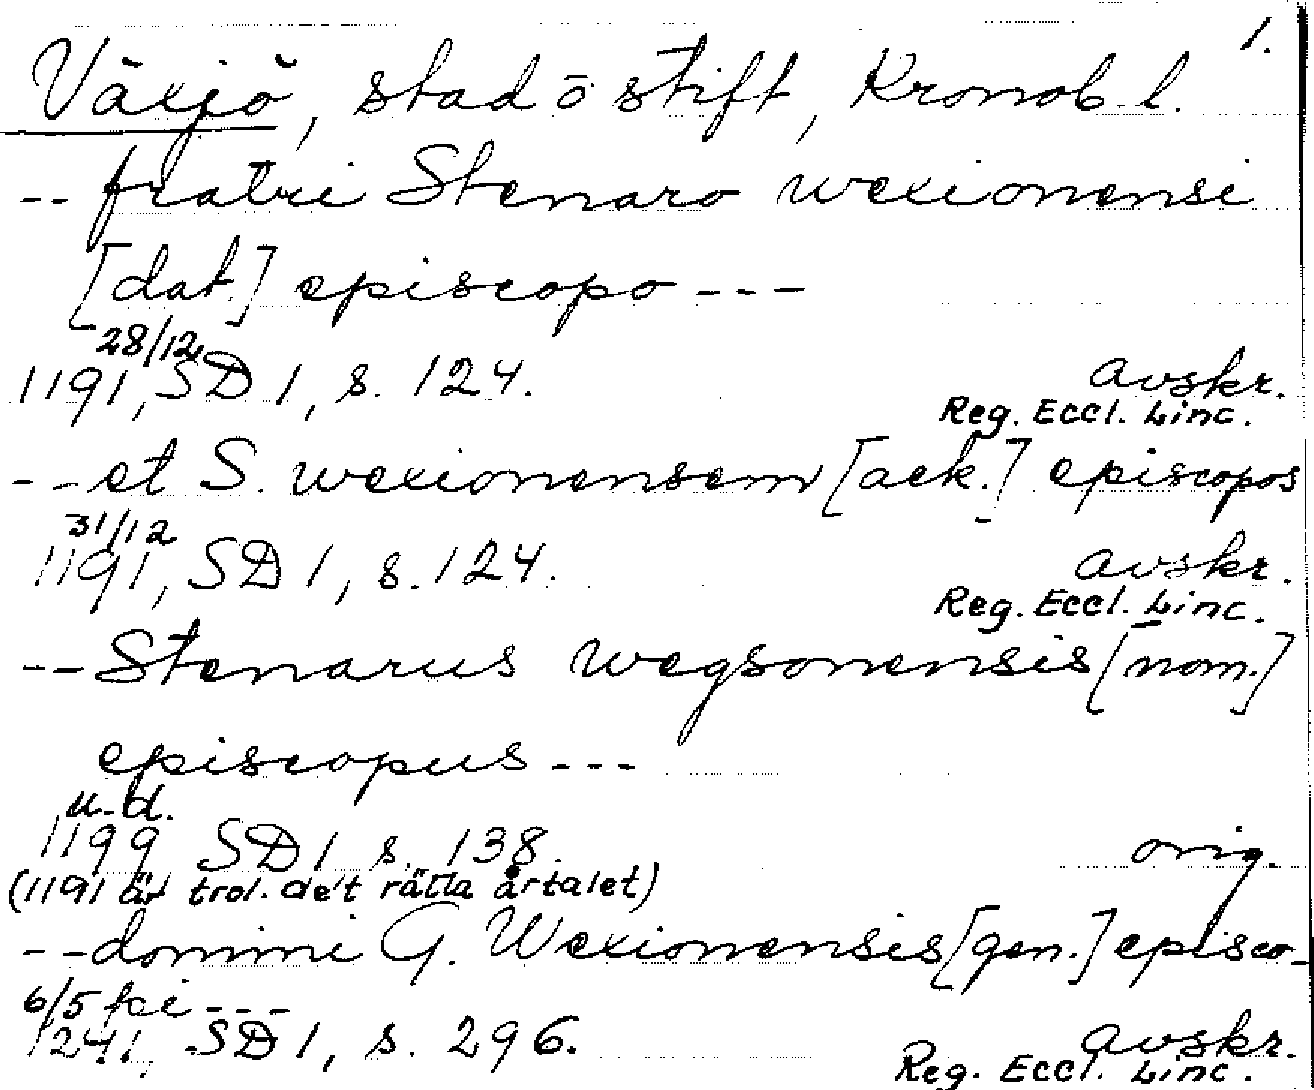 1.
Växjö, stad o stift, Kronob. l.
-- fratri Stenaro wexionensi
[dat.] episcopo ---
28/12
1191, SD 1, s. 124. avskr.
Reg. Eccl. Linc.
-- et S. wexionensem [ack.] episcopos
31/12
1191, SD 1, s. 124. avskr.
Reg. Eccl. Linc.
-- Stenarus wegsonensis [nom.]
episcopus ---
u.d.
1199 SD 1 s. 138. orig.
(1191 är trol. det rätta årtalet)
-- domini G. Wexionensis [gen.] episco-
6/5 pi ---
1241, SD 1, s. 296. avskr.
Reg. Eccl. Linc.